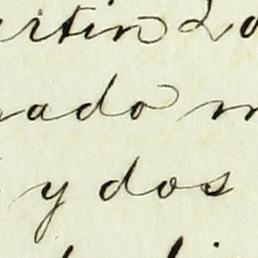 artin Lo
ado m
y dos